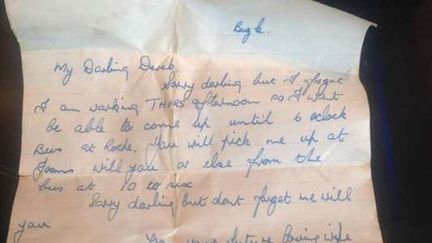 My Darling Derek
Sorry darling but I forgot
I am working THURS afternoon so I wont
be able to come up until 6 oclock
Bus at Rocks, You will pick me up at
Joans will you or else from the
bus at 10 to six
Sorry darling but dont forget me will
you
your future loving wife